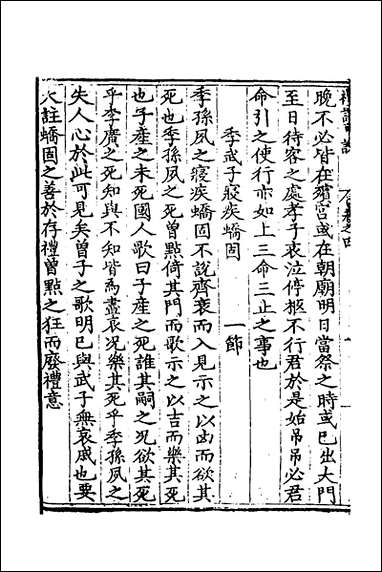 晚不必皆在殯宮或在朝廟明日當祭之時或已出大門
至日待客之處孝子哀泣停柩不行君於是始弔弔必君
命引之使行亦如上三命三止之事也
季武子寢疾蟜固 一節
季孫夙之寢疾蟜固不說齊衰而入見示之以凶而欲其
死也季孫夙之死曾點倚其門而歌示之以吉而樂其死
也子產之未死國人歌曰子產之死誰其嗣之况欲其死
乎李廣之死知與不知皆爲盡哀况樂其死乎季孫夙之
失人心於此可見矣曾子之歌明已與武子無哀戚也要
大註蟜固之善於存禮曾點之狂而廢禮意